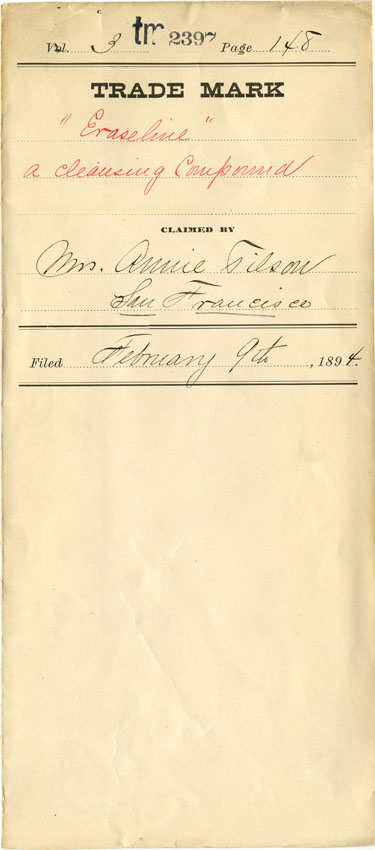 Vol. 3 tm 2397 Page 148
TRADE MARK
"Eraseline"
a cleansing Compound
CLAIMED BY
Mrs. Annie Tilson
San Francisco
Filed February 9th, 1894.